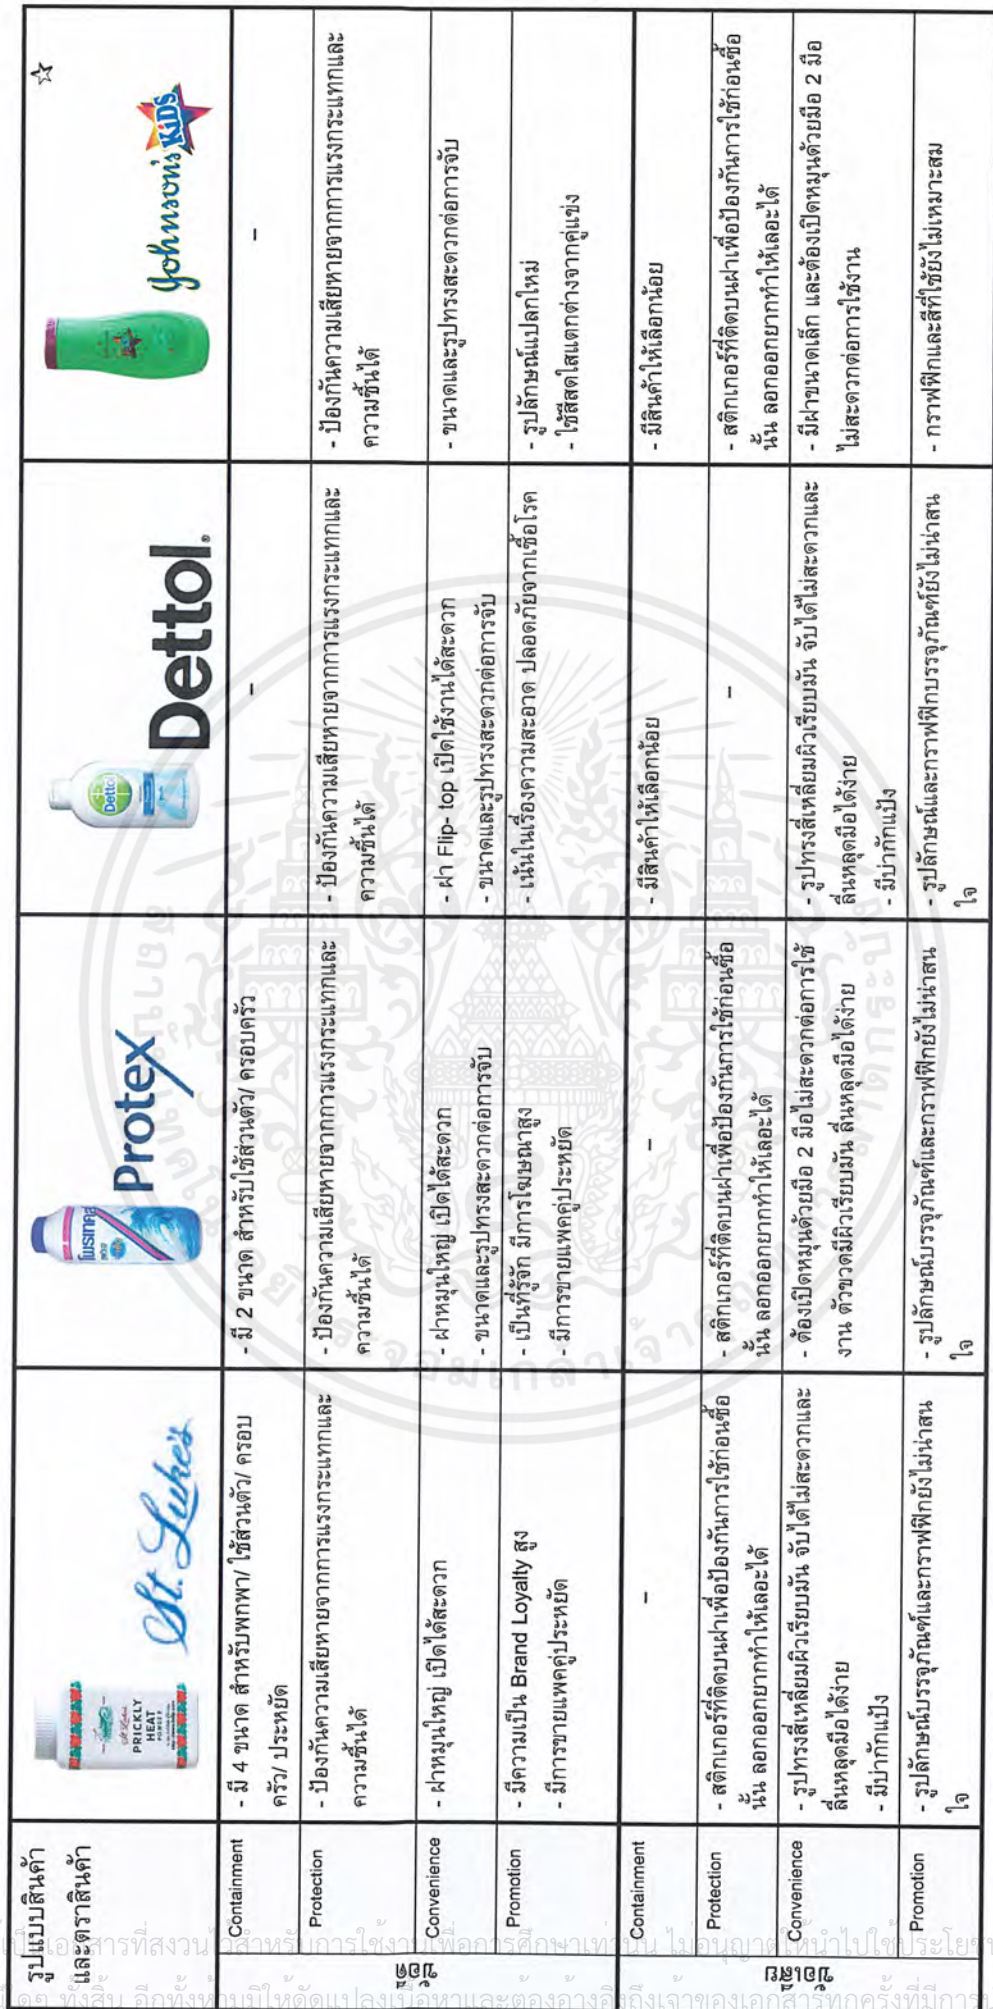 รูปแบบสินค้า
และตราสินค้า
PRICKLY
HEAT
POWDER
St. Luke's
โพรเทคส์
Protex
Dettol
Dettol
Johnson's KIDS
ข้อดี
Containment
- มี 4 ขนาด สำหรับพกพา/ ใช้ส่วนตัว/ ครอบ
ครัว/ ประหยัด
- มี 2 ขนาด สำหรับใช้ส่วนตัว/ ครอบครัว
-
-
Protection
- ป้องกันความเสียหายจากการแรงกระแทกและ
ความชื้นได้
- ป้องกันความเสียหายจากการแรงกระแทกและ
ความชื้นได้
- ป้องกันความเสียหายจากการแรงกระแทกและ
ความชื้นได้
- ป้องกันความเสียหายจากการแรงกระแทกและ
ความชื้นได้
Convenience
- ฝาหมุนใหญ่ เปิดได้สะดวก
- ฝาหมุนใหญ่ เปิดได้สะดวก
- ขนาดและรูปทรงสะดวกต่อการจับ
- ฝา Flip- top เปิดใช้งานได้สะดวก
- ขนาดและรูปทรงสะดวกต่อการจับ
- ขนาดและรูปทรงสะดวกต่อการจับ
Promotion
- มีความเป็น Brand Loyalty สูง
- มีการขายแพคคู่ประหยัด
- เป็นที่รู้จัก มีการโฆษณาสูง
- มีการขายแพคคู่ประหยัด
- เน้นในเรื่องความสะอาด ปลอดภัยจากเชื้อโรค
- รูปลักษณ์แปลกใหม่
- ใช้สีสดใสแตกต่างจากคู่แข่ง
ข้อเสีย
Containment
-
-
- มีสินค้าให้เลือกน้อย
- มีสินค้าให้เลือกน้อย
Protection
- สติกเกอร์ที่ติดบนฝาเพื่อป้องกันการใช้ก่อนซื้อ
นั้น ลอกออกยากทำให้เลอะได้
- สติกเกอร์ที่ติดบนฝาเพื่อป้องกันการใช้ก่อนซื้อ
นั้น ลอกออกยากทำให้เลอะได้
-
- สติกเกอร์ที่ติดบนฝาเพื่อป้องกันการใช้ก่อนซื้อ
นั้น ลอกออกยากทำให้เลอะได้
Convenience
- รูปทรงสี่เหลี่ยมผิวเรียบมัน จับได้ไม่สะดวกและ
ลื่นหลุดมือได้ง่าย
- มีบ่ากักแป้ง
- ต้องเปิดหมุนด้วยมือ 2 มือไม่สะดวกต่อการใช้
งาน ตัวขวดมีผิวเรียบมัน ลื่นหลุดมือได้ง่าย
- รูปทรงสี่เหลี่ยมผิวเรียบมัน จับได้ไม่สะดวกและ
ลื่นหลุดมือได้ง่าย
- มีบ่ากักแป้ง
- มีฝาขนาดเล็ก และต้องเปิดหมุนด้วยมือ 2 มือ
ไม่สะดวกต่อการใช้งาน
Promotion
- รูปลักษณ์บรรจุภัณฑ์และกราฟฟิกยังไม่น่าสน
ใจ
- รูปลักษณ์บรรจุภัณฑ์และกราฟฟิกยังไม่น่าสน
ใจ
- รูปลักษณ์และกราฟฟิกบรรจุภัณฑ์ยังไม่น่าสน
ใจ
- กราฟฟิกและสีที่ใช้ยังไม่เหมาะสม